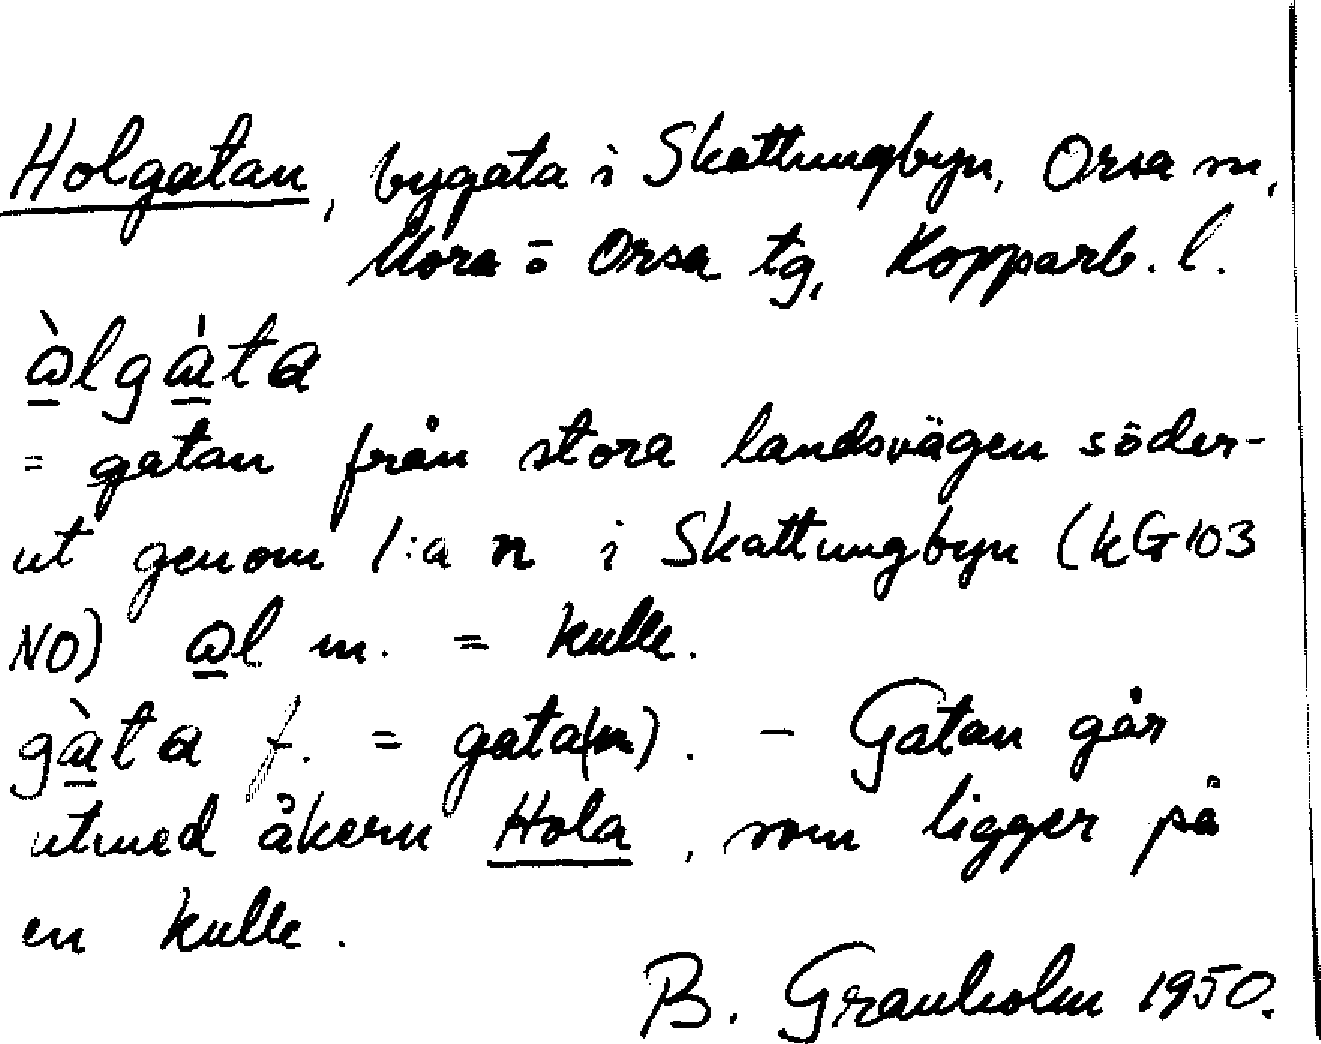 Holgatan, bygata i Skattungbyn, Orsa sn,
Mora = Orsa tg, Kopparb. l.
àlgáta
= gatan från stora landsvägen söder-
ut genom 1:a n i Skattungbyn (kG 103
NO) al m. = kulle.
gàta f. = gata(n). - Gatan går
utmed åkern Hola, som ligger på
en kulle.
B. Granholm 1950.